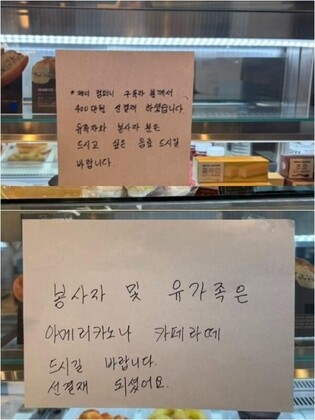 * 매터 컴퍼니 구독자 분께서
400만원 선결제 하셨습니다.
유족자와 봉사자 분은
드시고 싶은 음료 드시길
바랍니다.
봉사자 및 유가족은
아메리카노나 카페라떼
드시길 바랍니다.
선결재 되셨어요.